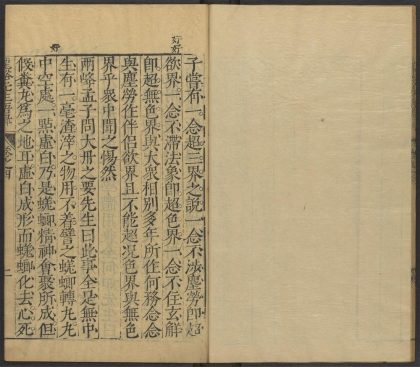 子嘗有一念超三界之說一念不涉塵勞即超
欲界一念不滯法象即超色界一念不住玄解
即超無色界與大眾相別多年所作何務念念
與塵勞作伴侶欲界且不能超况色界與無色
界乎衆中聞之惕然
兩峰孟子問大丹之要先生曰此事全是無中
生有一毫渣滓之物用不着譬之蜣蜋轉丸丸
中空處一點虛白乃是蜣蜋精神會聚所成但
假糞丸爲之地耳虛白成形而蜣蜋化去心死